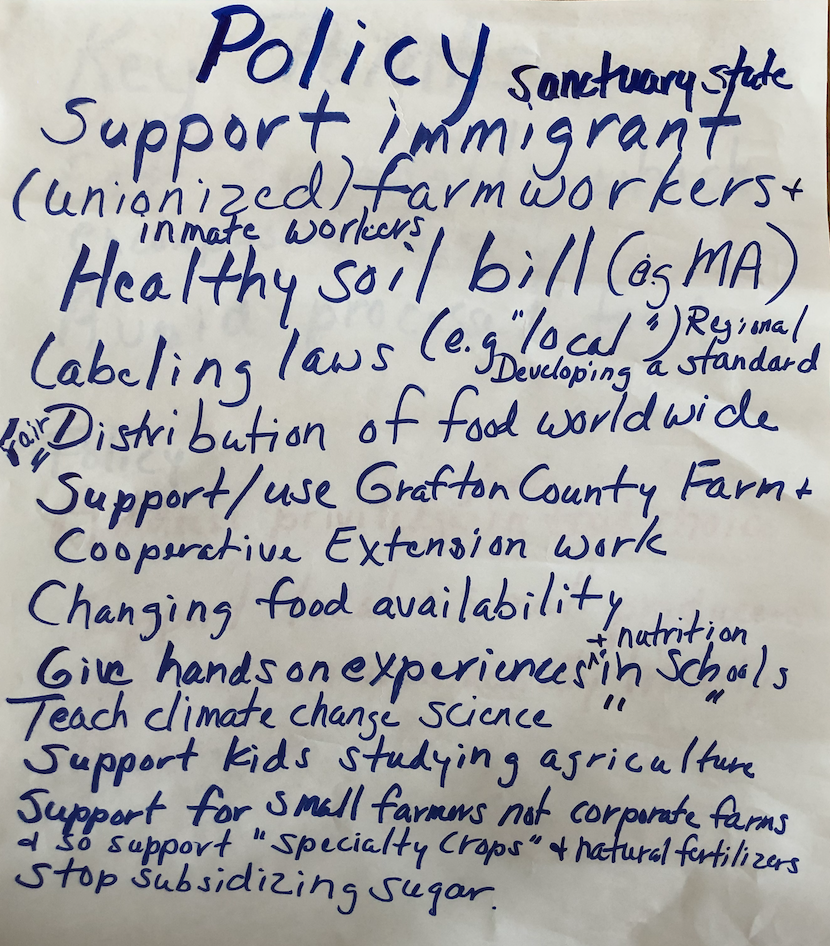 Policy
Sanctuary state
Support immigrant
(unionized) farmworkers +
inmate workers
Healthy soil bill (eg MA)
Labeling laws (e.g "local") Regional
Developing a standard
Fair Distribution of food worldwide
Support/use Grafton County Farm +
Cooperative Extension work
Changing food availability
+ nutrition
Give hands on experiences ^ in schools
Teach climate change science " "
Support kids studying agriculture
Support for small farmers not corporate farms
+ so support "specialty crops" + natural fertilizers
Stop subsidizing sugar.